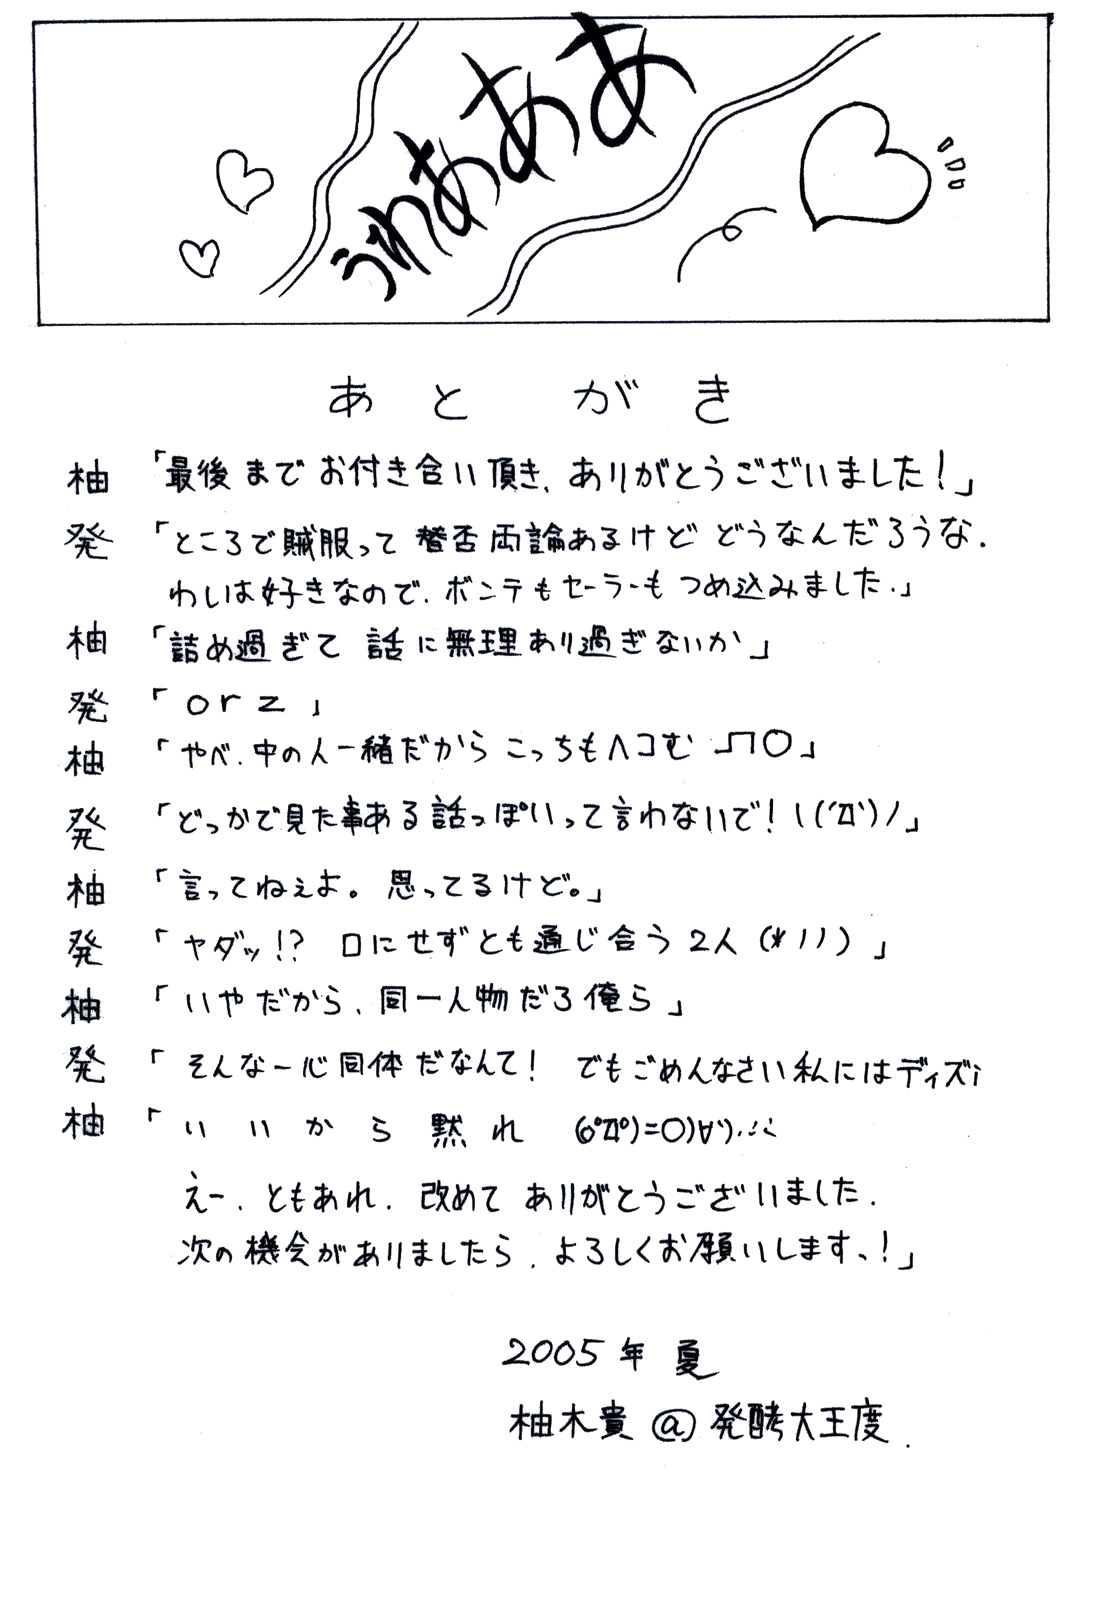 うわあああ
あとがき
柚「最後までお付き合い頂き、ありがとうございました！」
発「ところで賊服って賛否両論あるけどどうなんだろうな.
わしは好きなので、ボンテもセーラーもつめ込みました.」
柚「詰め過ぎて話に無理あり過ぎないか」
発「orz」
柚「やべ、中の人一緒だからこっちもヘコむ 」
発「どっかで見た事ある話っぽいって言わないで！ヽ(´Д`)ノ」
柚「言ってねぇよ。思ってるけど。」
発「ヤダッ!? 口にせずとも通じ合う2人(*ノノ)」
柚「いやだから、同一人物だろ俺ら」
発「そんな一心同体だなんて！ でもごめんなさい私にはディズi
柚「いいから黙れ (oﾟДﾟ)=O)∀`)
えー、ともあれ、改めてありがとうございました.
次の機会がありましたら、よろしくお願いします、！」
2005年 夏
柚木貴@発酵大王度